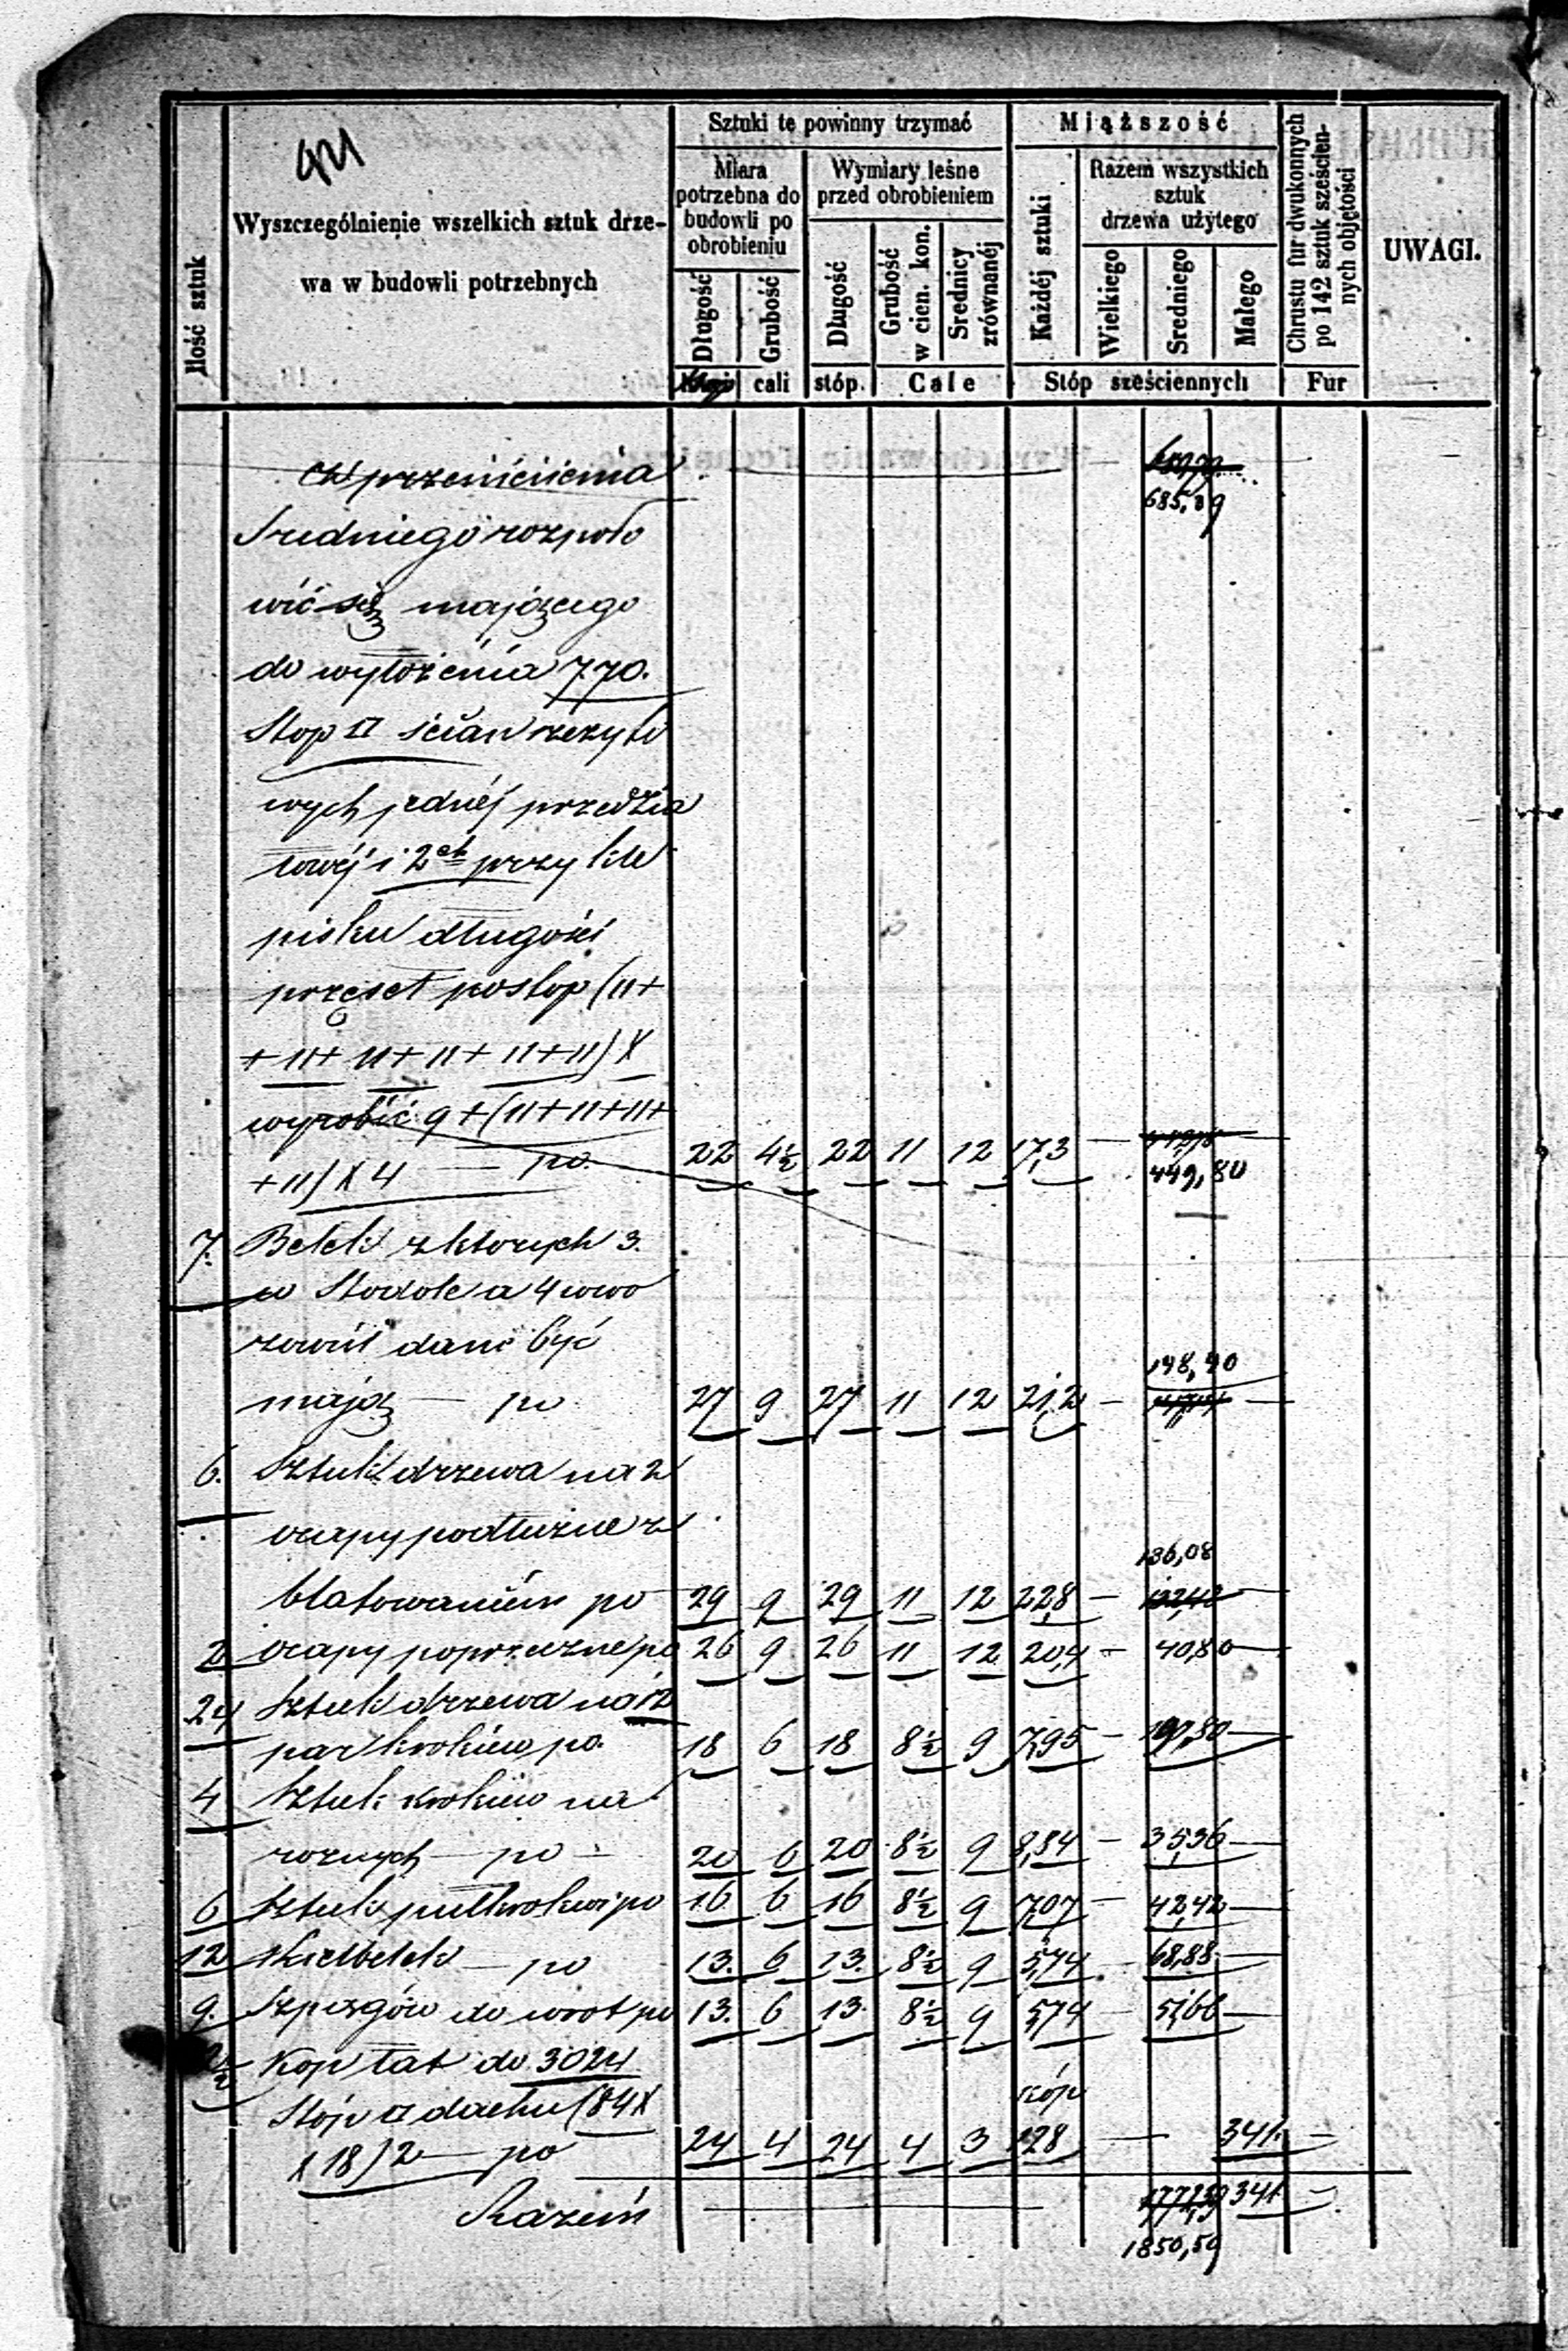 Ilość sztuk
Wyszczególnienie wszelkich sztuk drze-
wa w budowli potrzebnych
Sztuki te powinny trzymać
Miara
potrzebna do
budowli po
obrobieniu
Długość
Grubość
cali
Wymiary leśne
przed obrobieniem
Długość
stóp.
Grubość
w cien. kon.
Srednicy
zrównanéj
Cale
Miąższość
Każdéj sztuki
Razem wszystkich
sztuk
drzewa użytego
Wielkiego
Sredniego
Małego
Stóp sześciennych
Chrustu fur dwukonnych
po 142 sztuk sześcien-
nych objętości
Fur
UWAGI.
Z przeniesienia
685,89
Sredniego rozpoło
wić się mającego
do wyłożenia 770.
Stop □ ścian
wych jednéj przedzia
łowéj i 2ch przy kle
pisku długości
przęseł po stop (11+
+11+11+11+11+11) X
wyrobić 9+(11+11+11+
+11) X 4 — po 22 4½ 22 11 12 17,3 — 449,80
7. Belek z ktorych 3.
w Stodole a 4 wwo
zowni dane być
mają — po 27 9 27 11 12 21,2 — 148,40
6. Sztuk drzewa na 2
ocapy podłużne z
blatowaniem po 29 9 29 11 12 22,8 — 136,08
2 ocapy poprzeczne po 26 9 26 11 12 20,4 — 40,80
24 Sztuk drzewa na 12
par krokiew po. 18 6 18 8½ 9 7,95 —
4 Sztuk krokiew na
roznych — po — 20 6 20 8½ 9 8,84 — 35,36
6 Sztuk pułkrokwi po 16 6 16 8½ 9 7,07 — 42,42
12 — po 13. 6 13. 8½ 9 5,74 — 68,88
9. Szpągów do wrot po 13. 6 13 8½ 9 5,74 — 51,66
Kop łat do 3024
Stóp □ dachu (84 X
X 18) 2 — po 24 4 24 4 3 128 — 341.
Razem 341.
1850,59